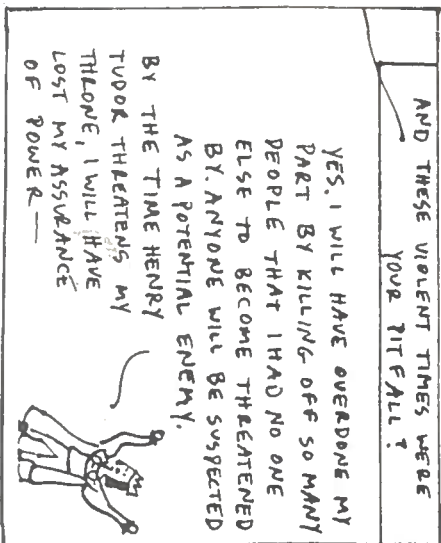 AND THESE VIOLENT TIMES WERE
YOUR PITFALL?
YES. I WILL HAVE OVERDONE MY
PART BY KILLING OFF SO MANY
PEOPLE THAT I HAD NO ONE
ELSE TO BECOME THREATENED
BY. ANYONE WILL BE SUSPECTED
AS A POTENTIAL ENEMY.
BY THE TIME HENRY
TUDOR THREATENS MY
THRONE, I WILL HAVE
LOST MY ASSURANCE
OF POWER —